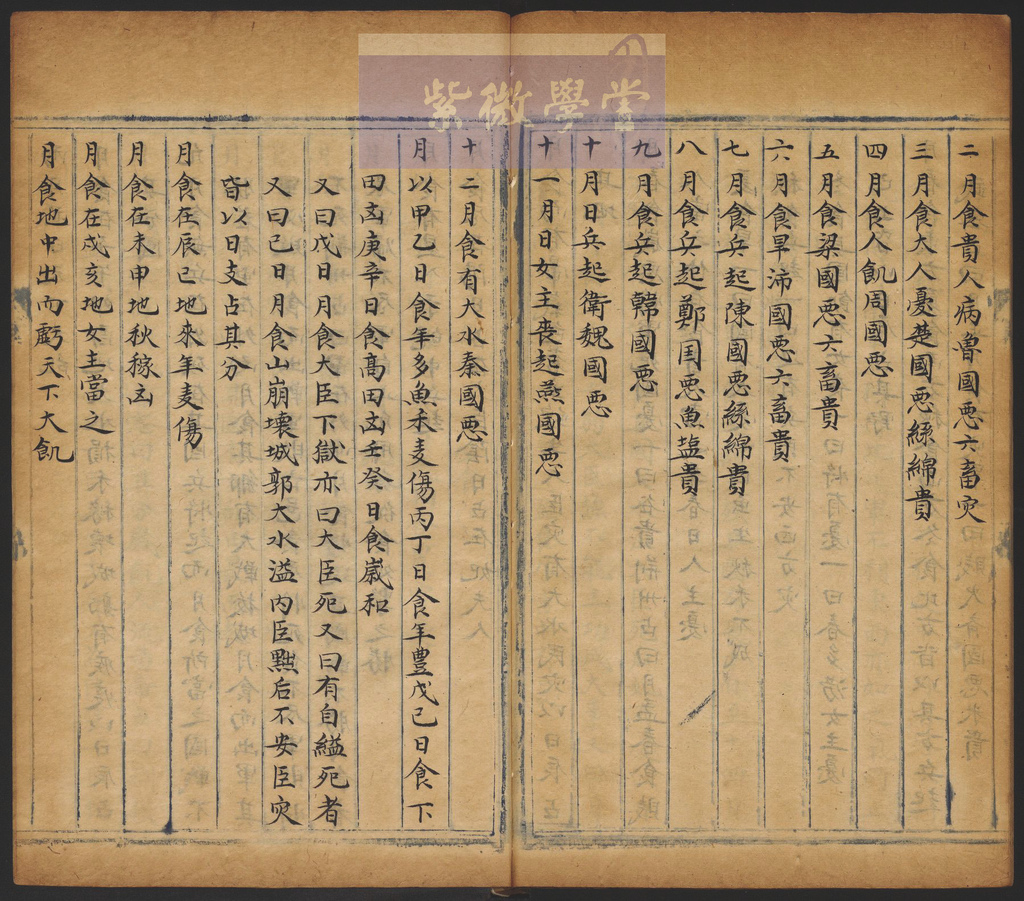 紫微學堂
二月食貴人病魯國惡六畜灾
三月食大人憂楚國惡絲綿貴
四月食人飢周國惡
五月食梁國惡六畜貴
六月食旱沛國惡六畜貴
七月食兵起陳國惡絲綿貴
八月食兵起鄭國惡魚塩貴
九月食兵起韓國惡
十月日兵起衛魏國惡
十一月日女主喪起燕國惡
十二月食有大水秦國惡
月以甲乙日食年多魚禾麦傷丙丁日食年豊戊己日食下
田凶庚辛日食高田凶壬癸日食歲和
又曰戊日月食大臣下獄亦曰大臣死又曰有自縊死者
又曰己日月食山崩壊城郭大水溢内臣黜后不安臣灾
皆以日支占其分
月食在辰巳地來年麦傷
月食在未申地秋稼凶
月食在戌亥地女主當之
月食地中出而虧天下大飢